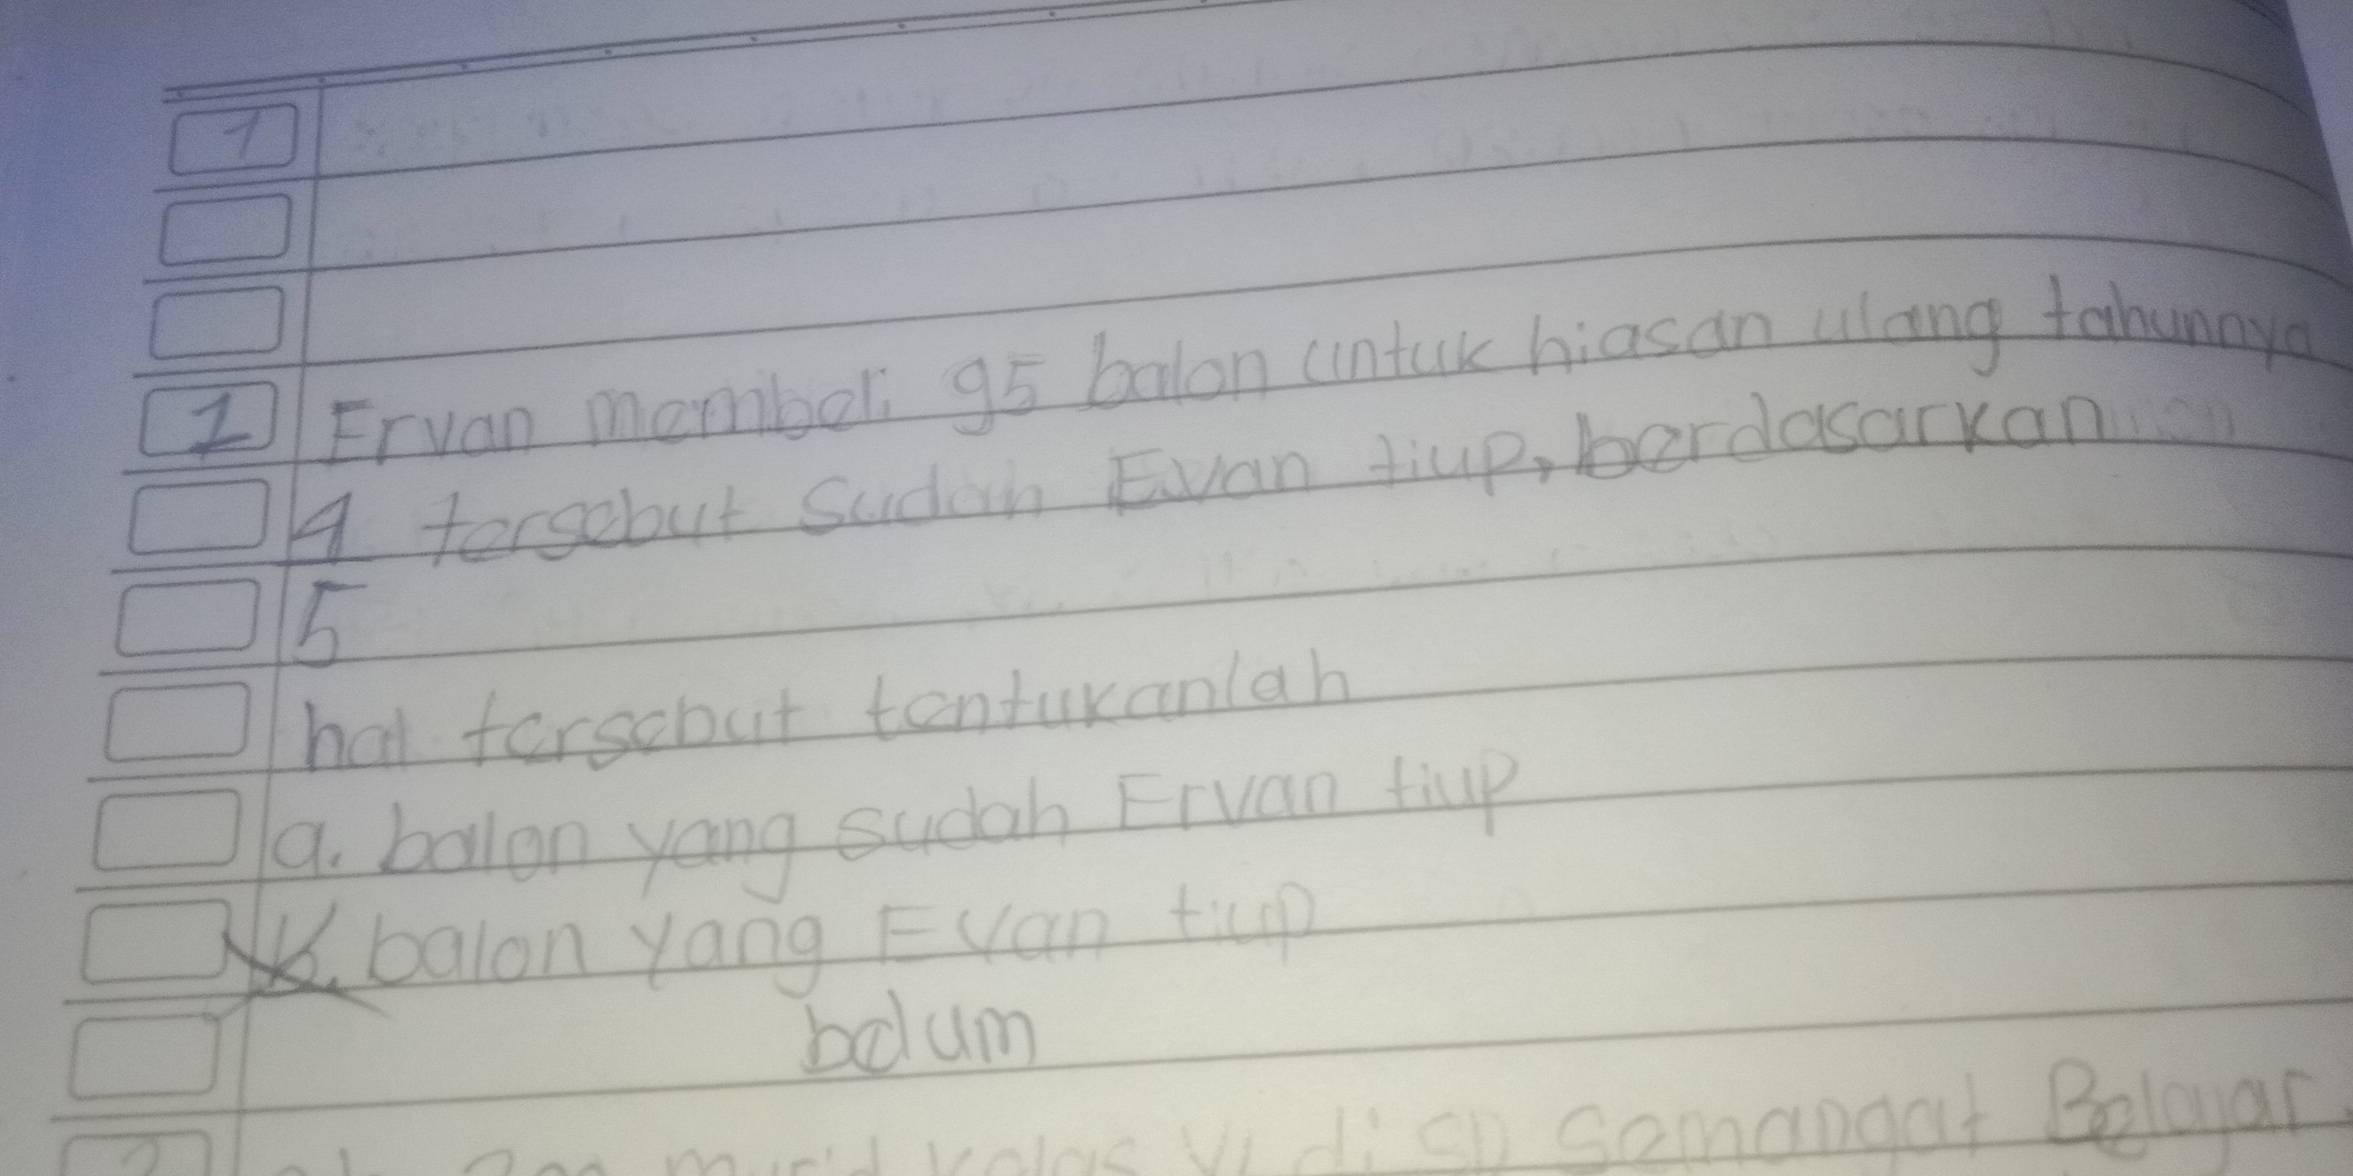 1
1 Ervan membeli 95 balon untuk hiasan ulang tahunnya
4 tersebut sudah Evan tiup, berdasarkan
5
hal tersebut tentukanlah
a. balon yang sudah Ervan tiup
b. balon yang Evan tiup
belum
murid kelas VI di SD Semangat Belajar